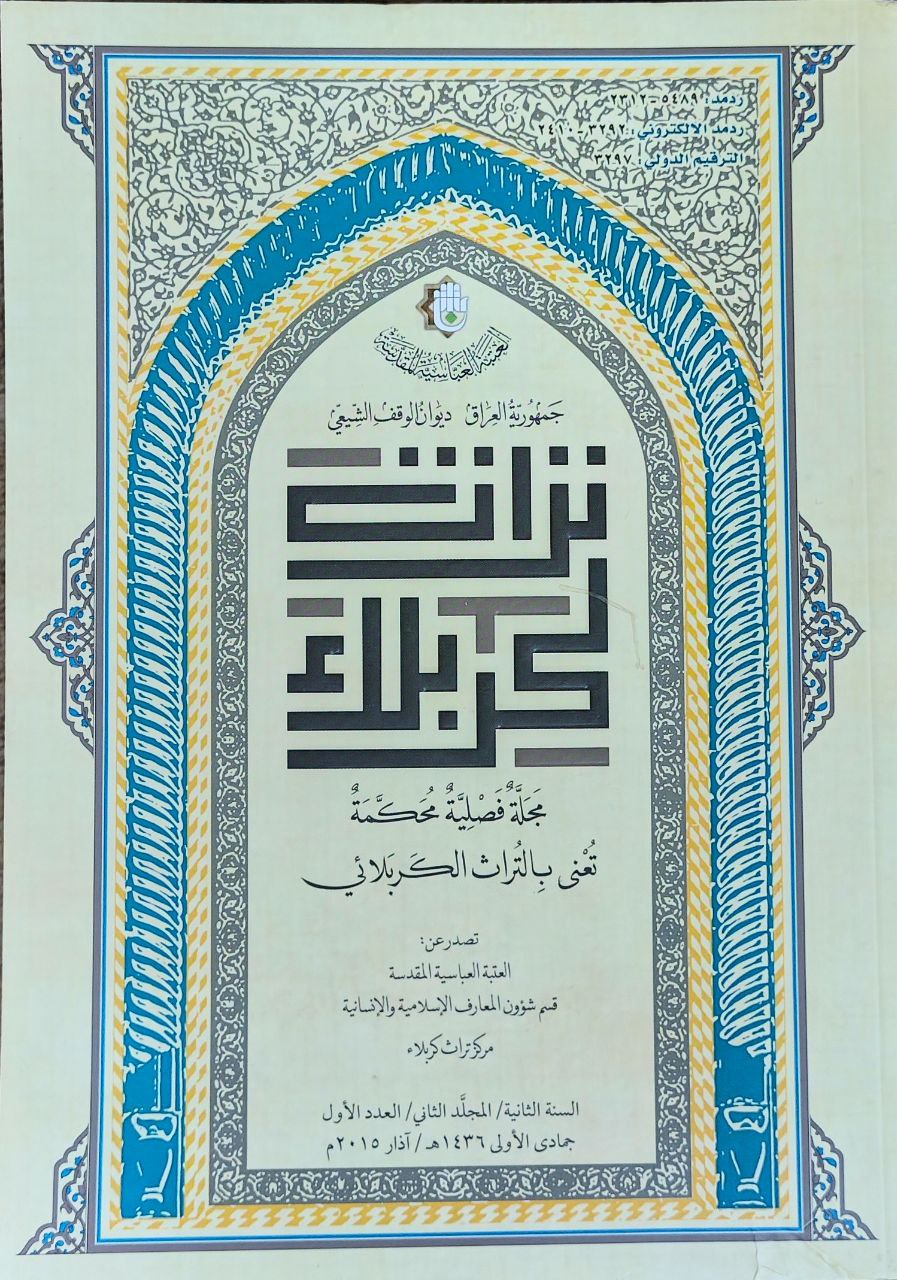 ردمد: ٥٤٨٩-٢٣١٢
ردمد الالكتروني: ٣٢٩٢-٢٤١٠
الترقيم الدولي: ٣٢٩٧
العتبة العباسية المقدسة
جَمهُوريّةُ العِرَاق ديوَانُ الوقفِ الشِّيعيّ
تراث
كربلاء
مَجَلَّةٌ فَصْلِيَّةٌ مُحَكَّمَةٌ
تُعْنى بِالتُراث الكَربَلائي
تصدر عن:
العتبة العباسية المقدسة
قسم شؤون المعارف الإسلامية والإنسانية
مركز تراث كربلاء
السنة الثانية/ المجلَّد الثاني/ العدد الأول
جمادى الأولى ١٤٣٦هـ/ آذار ٢٠١٥م